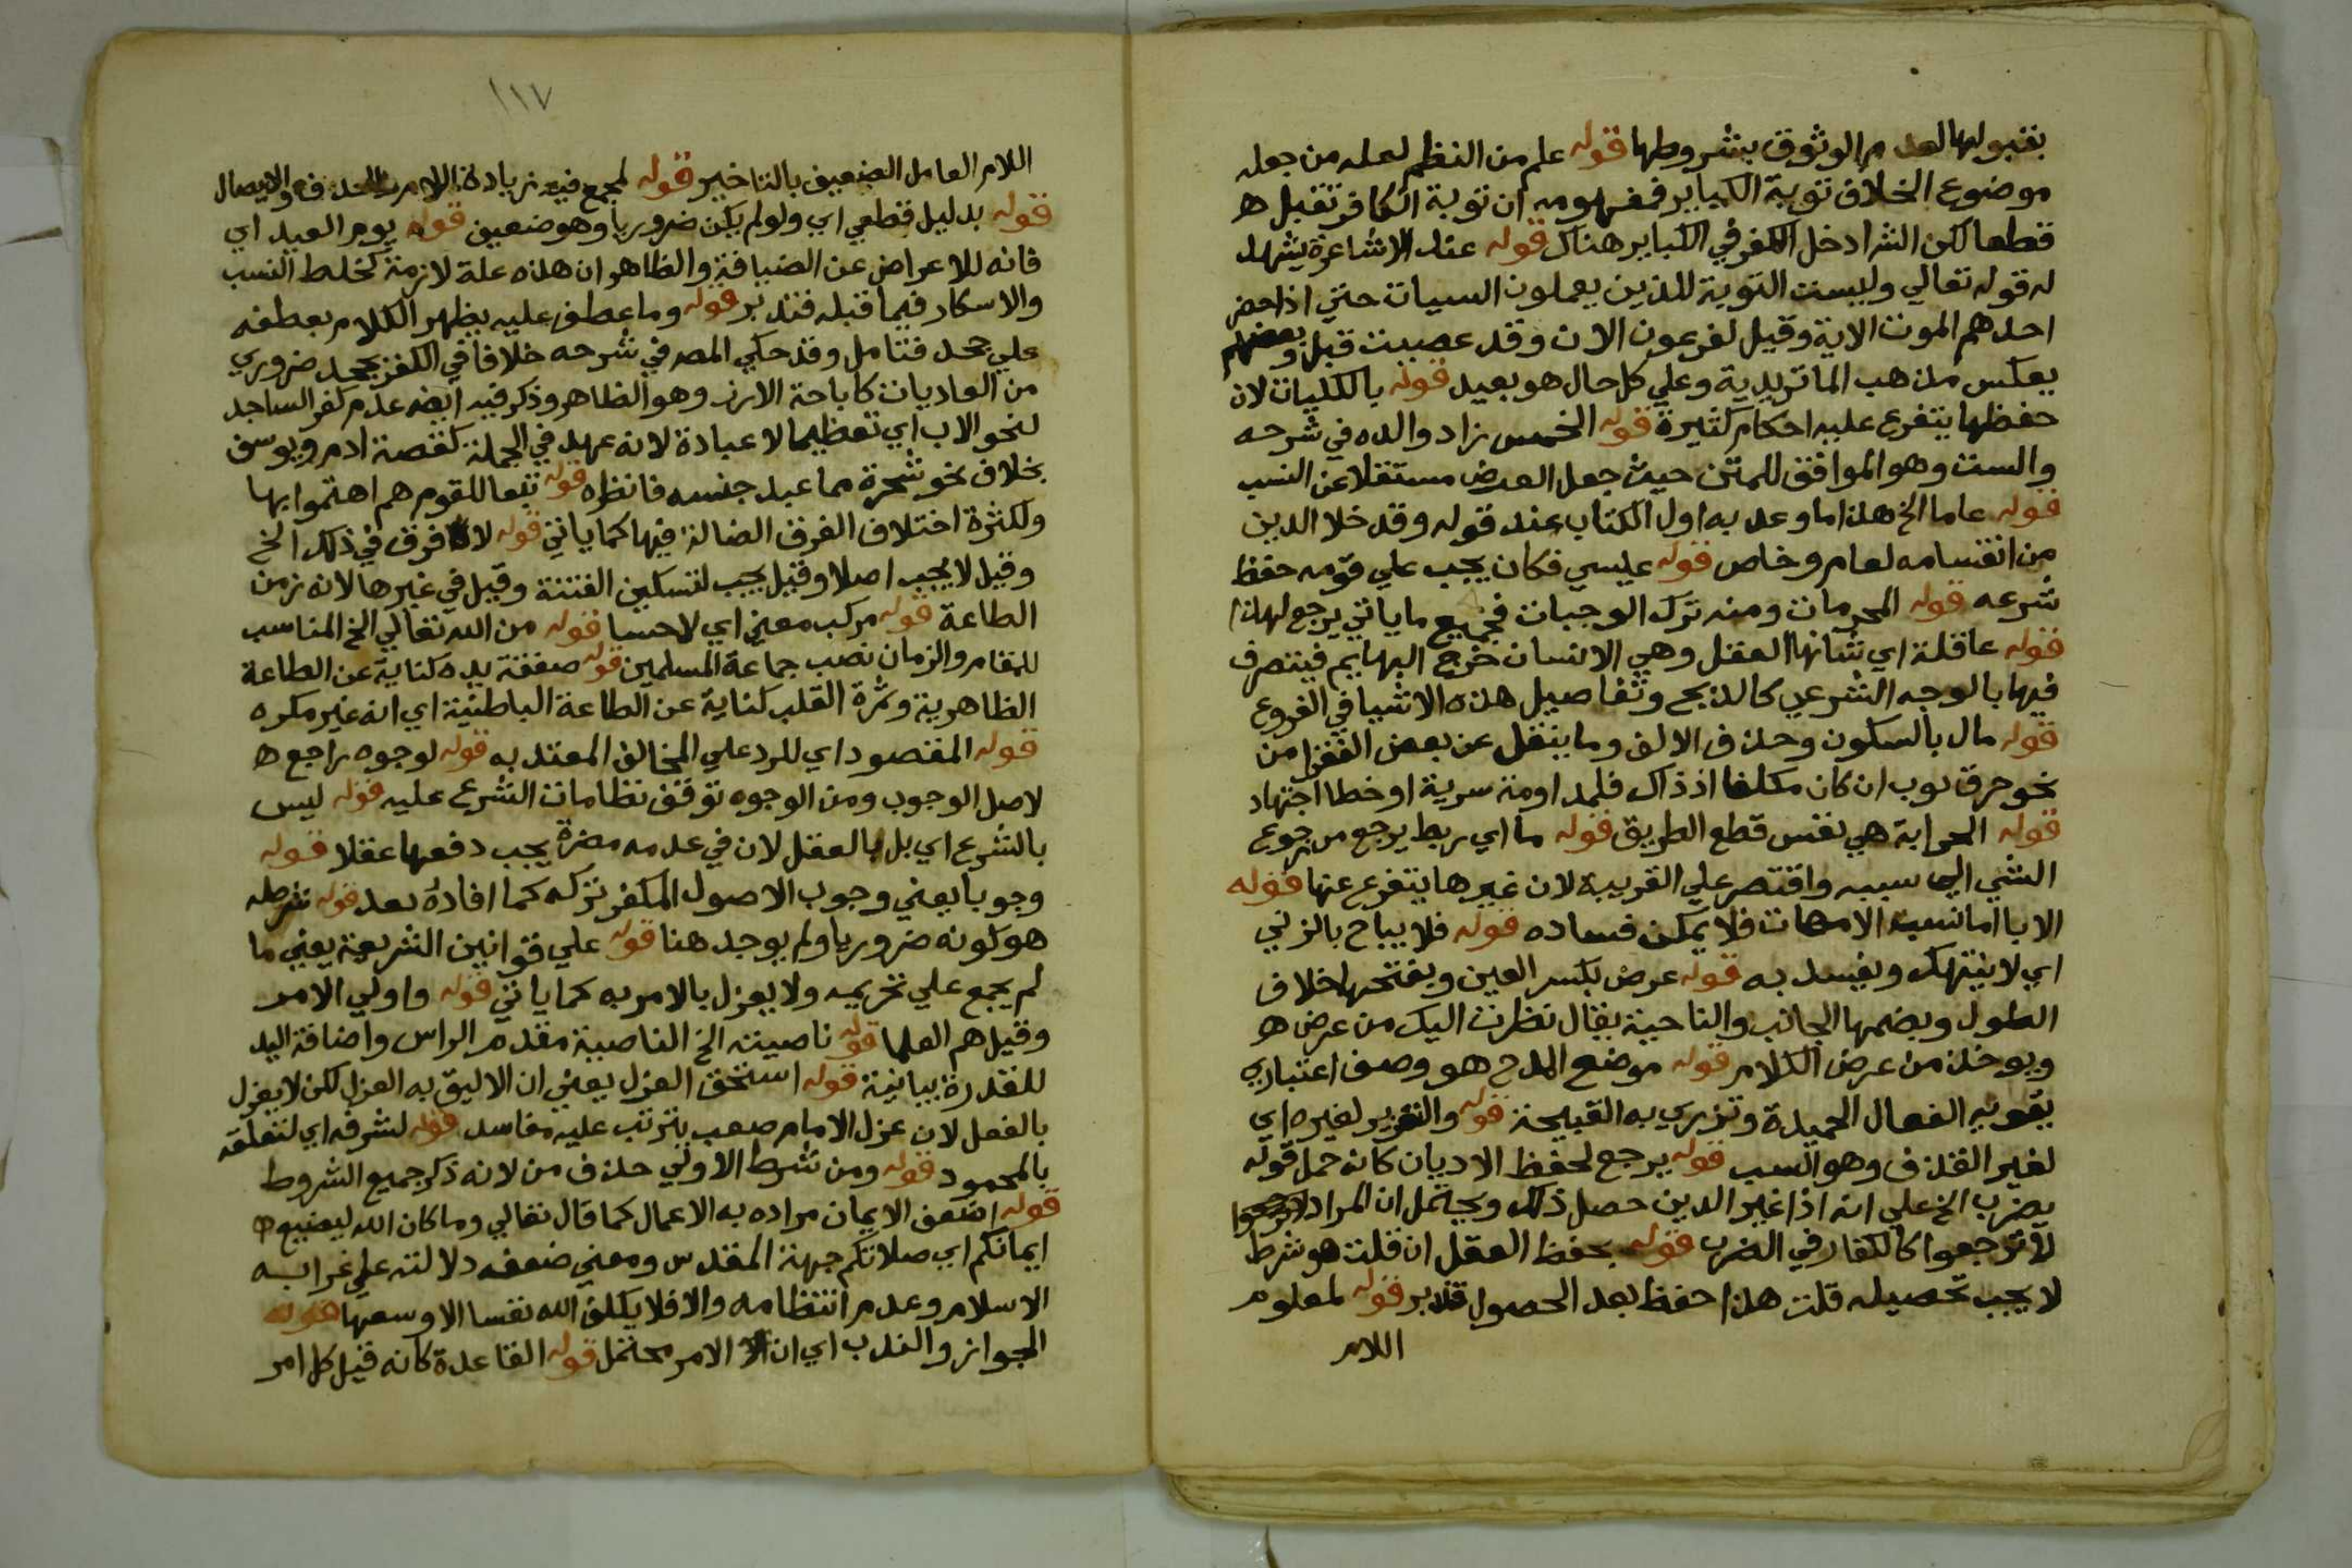 بقبولها لعدم الوثوق بشروطها قوله علم من النظم لعله من جعله
موضوع الخلاف توبة الكباير فمفهومه ان توبة الكافر تقبل
قطعا لكن الشرا دخل الكفر في الكباير هناك قوله عند الاشاعرة يشهد
له قوله تعالي وليست التوبة للذين يعملون السيات حتي اذا حضر
احدهم الموت الاية وقيل لفرعون الان وقد عصيت قبل وبعضهم
يعكس مذهب الماتريدية وعلي كل حال هو بعيد قوله بالكليات لان
حفظها يتفرع عليه احكام كثيرة قوله الخمس زاد والده في شرحه
والست وهو الموافق للمتن حيث جعل العرض مستقلا عن النسب
قوله عاما الخ هذا ما وعد به اول الكتاب عند قوله وقد خلا الدين
من انقسامه لعام وخاص قوله عليسي فكان يجب علي قومه حفظ
شرعه قوله المحرمات ومنه ترك الوجبات فجميع ما ياتي يرجع لهذا
قوله عاقلة اي شانها العقل وهي الانسان خرج البهايم فيتصرف
فيها بالوجه الشرعي كالذبح وتفاصيل هذه الاشيا في الفروع
قوله مال بالسكون وحذف الالف وما ينقل عن بعض الفقرا من
نحو حرق ثوب ان كان مكلفا اذ ذاك فلمداومة سرية او خطا اجتهاد
قوله الحرابة هي نفس قطع الطريق قوله ما اي ربط يرجع من رجوع
الشي الي سببه واقتصر علي القريبة لان غيرها يتفرع عنها قوله
الابا اما نسب الامهات فلا يمكن فساده قوله فلا يباح بالزني
اي لا ينتهك ويفسد به قوله عرض بكسر العين وبفتحها خلاف
الطول وبضمها الجانب والناحية يقال نظرت اليك من عرض
ويوخذ من عرض الكلام قوله موضع المدح هو وصف اعتباري
يقويه الفعال الحميدة وتزري به القبيحة قوله والتعزير لغيره اي
لغير القذف وهو السب قوله يرجع لحفظ الاديان كانه حمل قوله
يضرب الخ علي انه اذا غير الدين حصل ذلك ويحتمل ان المراد
لا ترجعوا كالكفار في الضرب قوله بحفظ العقل ان قلت هو شرط
لا يجب تحصيله قلت هذا حفظ بعد الحصول فلا ير قوله لمعلوم
اللام
١١٧
اللام العامل الضعيف بالتاخير قوله لمجمع فيه زيادة اللام والحذف والايصال
قوله بدليل قطعي اي ولو لم يكن ضروريا وهو ضعيف قوله يوم العيد اي
فانه للاعراض عن الضيافة والظاهر ان هذه علة لازمة كخلط النسب
والاسكار فيما قبله فتدبر قوله وما عطف عليه يظهر الكلام بعطفه
علي جحد فتامل وقد حكي المصر في شرحه خلافا في الكفر بجحد ضروري
من العاديات كاباحة الارز وهو الظاهر وذكر فيه ايضه عدم كفر الساجد
لنحو الاب اي تعظيما لا عبادة لانه عهد في الجملة كقصة ادم ويوسف
بخلاف نحو شجرة مما عبد جنسه فانظره قوله تبعا للقوم هم اهتموا بها
ولكثرة اختلاف الفرق الضالة فيها كما ياتي قوله لا فرق في ذلك الخ
وقيل لا يجب اصلا وقيل يجب لتسكين الفتنة وقيل في غيرها لانه زمن
الطاعة قوله مركب معني اي لا حسا قوله من الله تعالي الخ المناسب
للمقام والزمان نصب جماعة المسلمين قوله صفقة يده كناية عن الطاعة
الظاهرية وثمرة القلب كناية عن الطاعة الباطنية اي انه غير مكره
قوله المقصود اي للرد علي المخالف المعتد به قوله لوجوه راجع
لاصل الوجوب ومن الوجوه توقف نظامات الشرع عليه قوله ليس
بالشرع اي بل بالعقل لان في عدمه مضرة يجب دفعها عقلا قوله
وجوبا يعني وجوب الاصول المكفر تركه كما افاده بعد قوله شرطه
هو كونه ضروريا ولم يوجد هنا قوله علي قوانين الشريعة يعني ما
لم يجمع علي تحريمه ولا يعزل بالامر به كما ياتي قوله واولي الامر
وقيل هم العلما قوله ناصيته الخ الناصية مقدم الراس واضافة اليد
للقدرة بيانية قوله استحق العزل يعني ان الاليق به العزل لكن لا يعزل
بالفعل لان عزل الامام صعب يترتب عليه مفاسد قوله لشرفه اي لتعلقه
بالمحمود قوله ومن شرط الاولي حذف من لانه ذكر جميع الشروط
قوله اضعف الايمان مراده به الاعمال كما قال تعالي وما كان الله ليضيع
ايمانكم اي صلاتكم جهة المقدس ومعني ضعفه دلالته علي غرابة
الاسلام وعدم انتظامه والا فلا يكلف الله نفسا الا وسعها قوله
الجواز والندب اي ان الامر محتمل قوله القاعدة كانه قيل كل امر